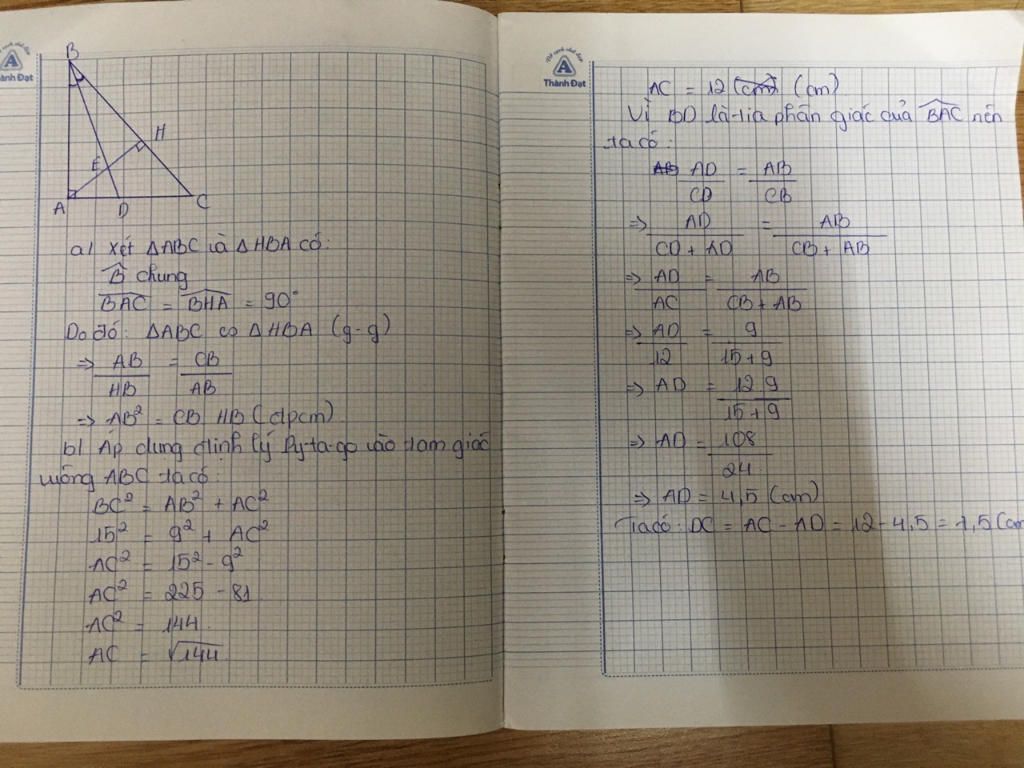 Thành Đạt
B
H
E
A
D
C
a/ Xét ΔABC và ΔHBA có:
B̂ chung
BAC = BHA = 90°
Do đó: ΔABC ∽ ΔHBA (g-g)
=> AB/HB = CB/AB
=> AB² = CB.HB (đpcm)
b/ Áp dụng định lý Py-ta-go vào tam giác
vuông ABC ta có:
BC² = AB² + AC²
15² = 9² + AC²
AC² = 15² - 9²
AC² = 225 - 81
AC² = 144
AC = √144
Thành Đạt
AC = 12 (cm)
Vì BD là tia phân giác của BAC nên
ta có:
AD/CD = AB/CB
=> AD/(CD + AD) = AB/(CB + AB)
=> AD/AC = AB/(CB + AB)
=> AD/12 = 9/(15+9)
=> AD = 12.9/(15+9)
=> AD = 108/24
=> AD = 4,5 (cm)
Ta có: DC = AC - AD = 12 - 4,5 = 7,5 (cm